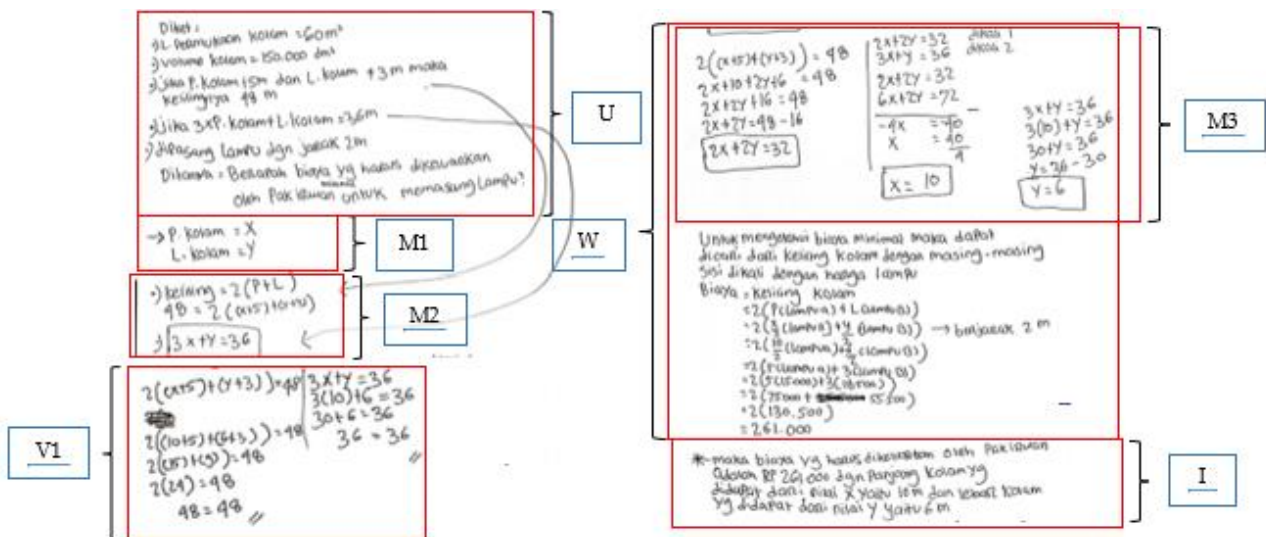 Diket :
•) L. Permukaan Kolam = 60 m²
•) Volume Kolam = 150.000 dm³
•) Jika P. Kolam +5m dan L. Kolam +3m maka
kelilingnya 48 m
•) Jika 3xP. Kolam + L. Kolam = 36m
•) dipasang lampu dgn jarak 2m
Ditanya = Berapak biaya yg harus dikeluarkan
oleh Pak untuk memasang lampu?
U
→ P. Kolam = X
L. Kolam = Y
M1
•) Keliling = 2(P+L)
48 = 2((x+5)+(y+3))
•) 3x+y=36
M2
V1
2((x+5)+(y+3))=48
2((10+5)+(6+3))=48
2((15)+(9))=48
2(24)=48
48=48 //
3x+y=36
3(10)+6=36
30+6=36
36=36
//
W
2((x+5)+(y+3))=48
2x+10+2y+6=48
2x+2y+16=48
2x+2y=48-16
2x+2y=32
2x+2y=32 dikali 1
3x+y=36 dikali 2
2x+2y=32
6x+2y=72
-4x = -40
x = 40
4
x = 10
3x+y=36
3(10)+y=36
30+y=36
y=36-30
y=6
M3
Untuk mengetahui biaya minimal maka dapat
dicari dari keliling kolam dengan masing-masing
sisi dikali dengan harga lampu
Biaya = Keliling Kolam
=2(P(lampu a)+L(lampu B))
=2(x/2(lampu a)+y/2(lampu B)) → berjarak 2 m
=2(10/2(lampu a)+6/2(lampu B))
=2(5(lampu a)+3(lampu B))
=2(5(15000)+3(18500))
=2(75000+ 55500)
=2(130.500)
=261.000
*-maka biaya yg harus dikeluarkan oleh Pak
adalah RP 261.000 dgn Panjang kolam yg
didapat dari nilai X yaitu 10 m dan lebar kolam
yg didapat dari nilai Y yaitu 6 m
I